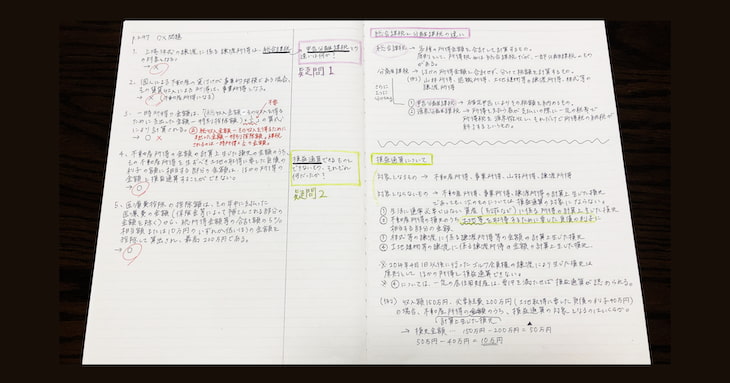 p.247 〇×問題
1. 上場株式の譲渡に係る譲渡所得は、総合課税
の対象となる
→ ×
2. 個人による不動産の貸付けが事業的規模である場合、
その賃貸収入による所得は、事業所得となる。
→ × (不動産所得になる)
3. 一時所得の金額は、「総収入金額-その収入を得る
ために支出した金額-特別控除額
により計算される。
→ ×
4. 不動産所得の金額の計算上生じた損失の金額のうち、
その不動産所得を生ずべき土地の取得に要した負債
の利子の額に相当する部分の金額は、ほかの所得の
金額と損益通算することができない。
→ 〇
5. 医療費控除の控除額は、その年に支払った
医療費の金額(保険金等によって補てんされる部分の
金額を除く)から、総所得金額等の合計額の5%
相当額または10万円のいずれか低いほうの金額を
控除して算出され、最高200万円である。
→ 〇
申告分離課税との
違いは何か?
疑問1
損益通算できるものと
できないもの、それぞれ
何だったか?
疑問2
総合課税と分離課税の違い
総合課税→ 各種の所得金額を合計して計算するもの。
分離課税→ ほかの所得金額と合計せず、分けて税額を計算するもの。
(例) 山林所得、退職所得、土地建物等の譲渡所得、株式等の
譲渡所得
損益通算について
対象となるもの → 不動産所得、事業所得、山林所得、譲渡所得
対象とならないもの → 不動産所得、事業所得、譲渡所得の計算上生じた損失
であっても、次のものについては損益通算の対象にならない。
① 生活に通常必要ではない資産(別荘など)に係る所得の計算上生じた損失
② 不動産所得の損失のうち、土地等を取得するために要した負債の利子に
相当する部分の金額
③ 株式等の譲渡に係る譲渡所得等の金額の計算上生じた損失
④ 土地建物等の譲渡に係る譲渡所得の金額の計算上生じた損失
※ 2014年4月1日以後に行ったゴルフ会員権の譲渡により生じた損失は
原則として、ほかの所得と損益通算できない。
※ ④については、一定の居住用財産は、要件を満たせば損益通算が認められる。
(例) 収入額150万円、必要経費200万円(土地取得に要した負債の利子40万円)
の場合、不動産所得の金額のうち、損益通算の対象となるのはいくらか。
(計算上生じた損失)
→ 損失金額… 150万円-200万円=▲50万円
50万円-40万円=10万円